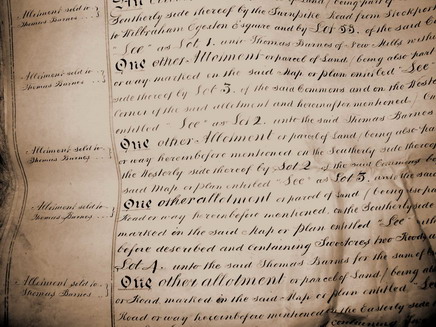 Allotment sold to
Thomas Barnes
Allotment sold to
Thomas Barnes
Allotment sold to
Thomas Barnes
Allotment sold to
Thomas Barnes
Allotment sold to
Thomas Barnes
One other Allotment or parcel of Land / being part of
Southerly side thereof by the Turnpike Road from Stockport
to Wilbraham Egerton Esquire and by Lot 22. of the said
"Lee" as Lot 1. unto Thomas Barnes of New Mills
One other Allotment or parcel of Land / being also part
or way marked on the said Map or plan entitled "Lee"
side thereof by Lot 3. of the said Commons and on the
Corner of the said allotment and hereinafter mentioned
entitled "Lee" as Lot 2. unto the said Thomas Barnes
One other Allotment or parcel of Land / being also
or way hereinbefore mentioned on the Southerly side thereof
the Westerly side thereof by Lot 2 of the said Commons
said Map or plan entitled "Lee" as Lot 3. unto the said
One other allotment or parcel of Land / being
Road or way hereinbefore mentioned, on the Southerly side
marked on the said Map or plan entitled "Lee"
before described and containing two Roods
Lot 4. unto the said Thomas Barnes for the sum of
One other allotment or parcel of Land / being also
or Road marked on the said Map or plan entitled "Lee"
Road or way hereinbefore mentioned on the Easterly side
containing